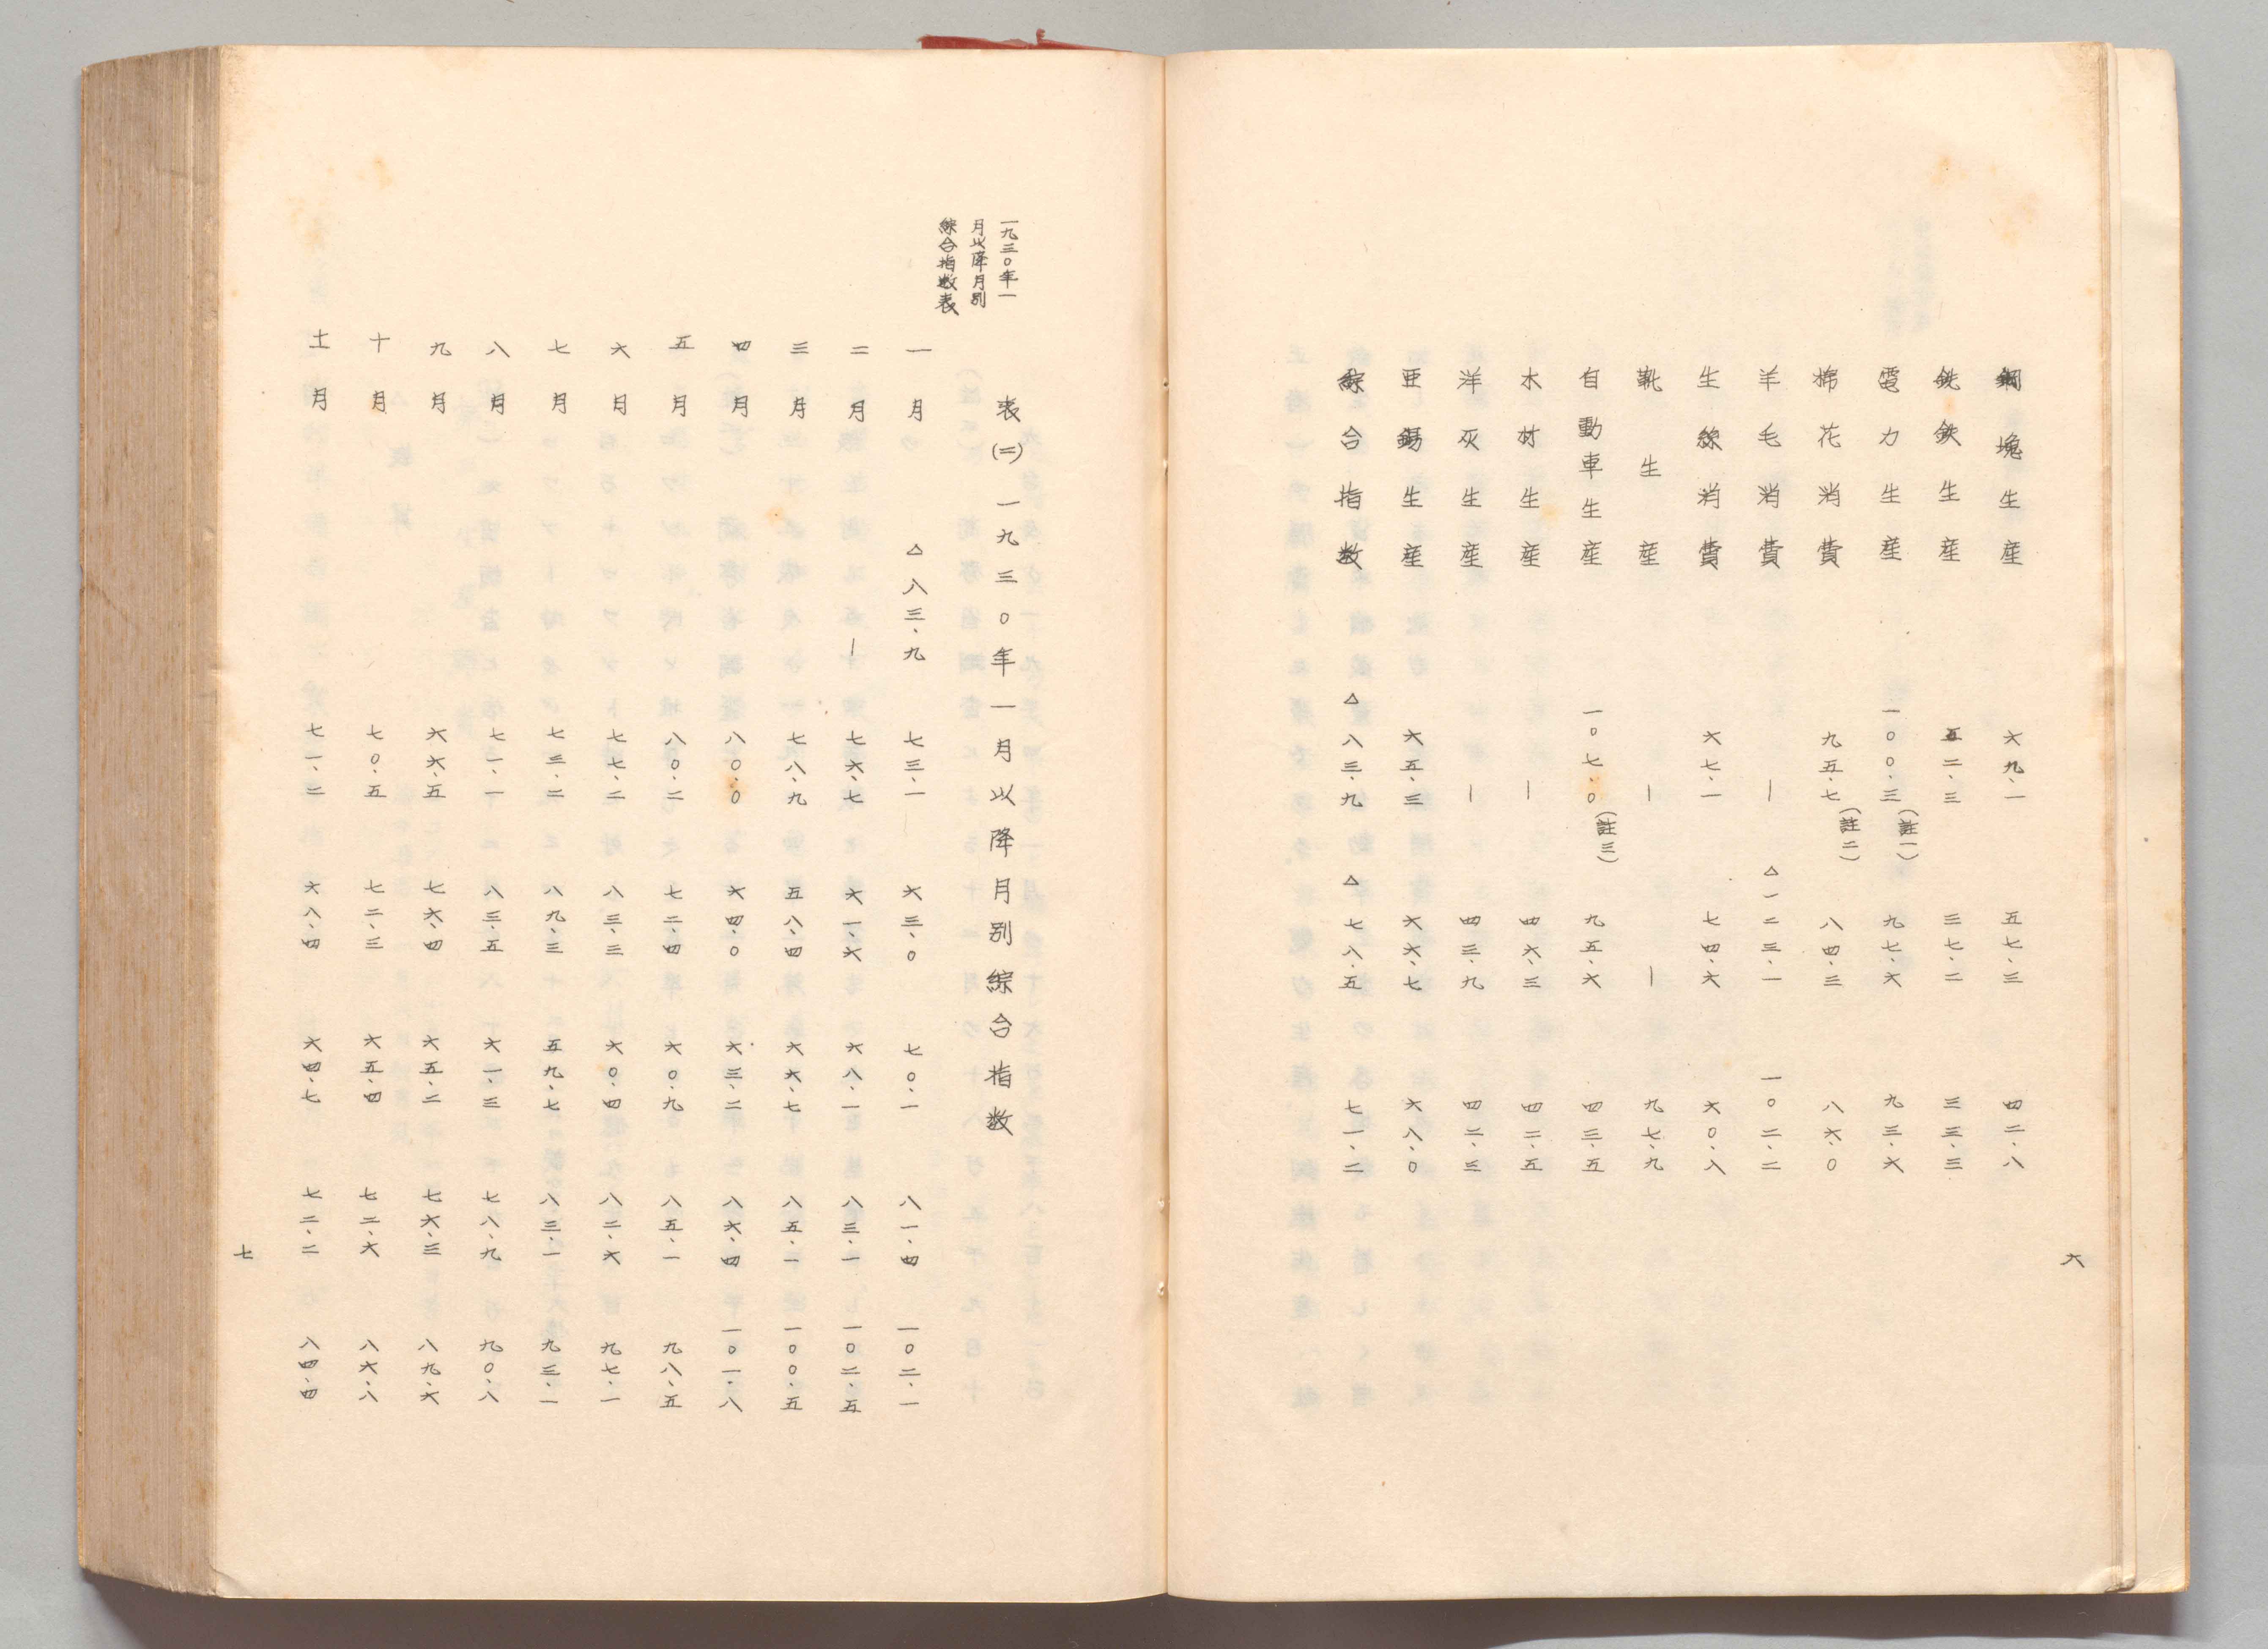 六
鋼塊生産 六九、一 五七、三 四二、八
銑鉄生産 五二、三 三七、二 三三、三
電力生産 一〇〇、三(註一) 九七、六 九三、六
棉花消費 九五、七(註二) 八四、三 八六、〇
羊毛消費 ― △一二三、一 一〇二、二
生絲消費 六七、一 七四、六 六〇、八
靴生産 ― ― 九七、九
自動車生産 一〇七、〇(註三) 九五、六 四三、五
木材生産 ― 四六、三 四二、五
洋灰生産 ― 四三、九 四二、三
亜錫生産 六五、三 六六、七 六八、〇
綜合指数 △八三、九 △七八、五 七一、二
一九三〇年一
月以降月別
綜合指数表
表(二) 一九三〇年一月以降月別綜合指数
一月 △八三、九 七三、一 六三、〇 七〇、一 八一、四 一〇二、一
二月 ― 七六、七 六一、六 六八、一 八三、一 一〇二、五
三月 七八、九 五八、四 六六、七 八五、一 一〇〇、五
四月 八〇、〇 六四、〇 六三、二 八六、四 一〇一、八
五月 八〇、二 七二、四 六〇、九 八五、一 九八、五
六月 七七、二 八三、三 六〇、四 八二、六 九七、一
七月 七三、二 八九、三 五九、七 八三、一 九三、一
八月 七一、一 八三、五 六一、三 七八、九 九〇、八
九月 六六、五 七六、四 六五、二 七六、三 八九、六
十月 七〇、五 七二、三 六五、四 七二、六 八六、八
土月 七一、二 六八、四 六四、七 七二、二 八四、四
七